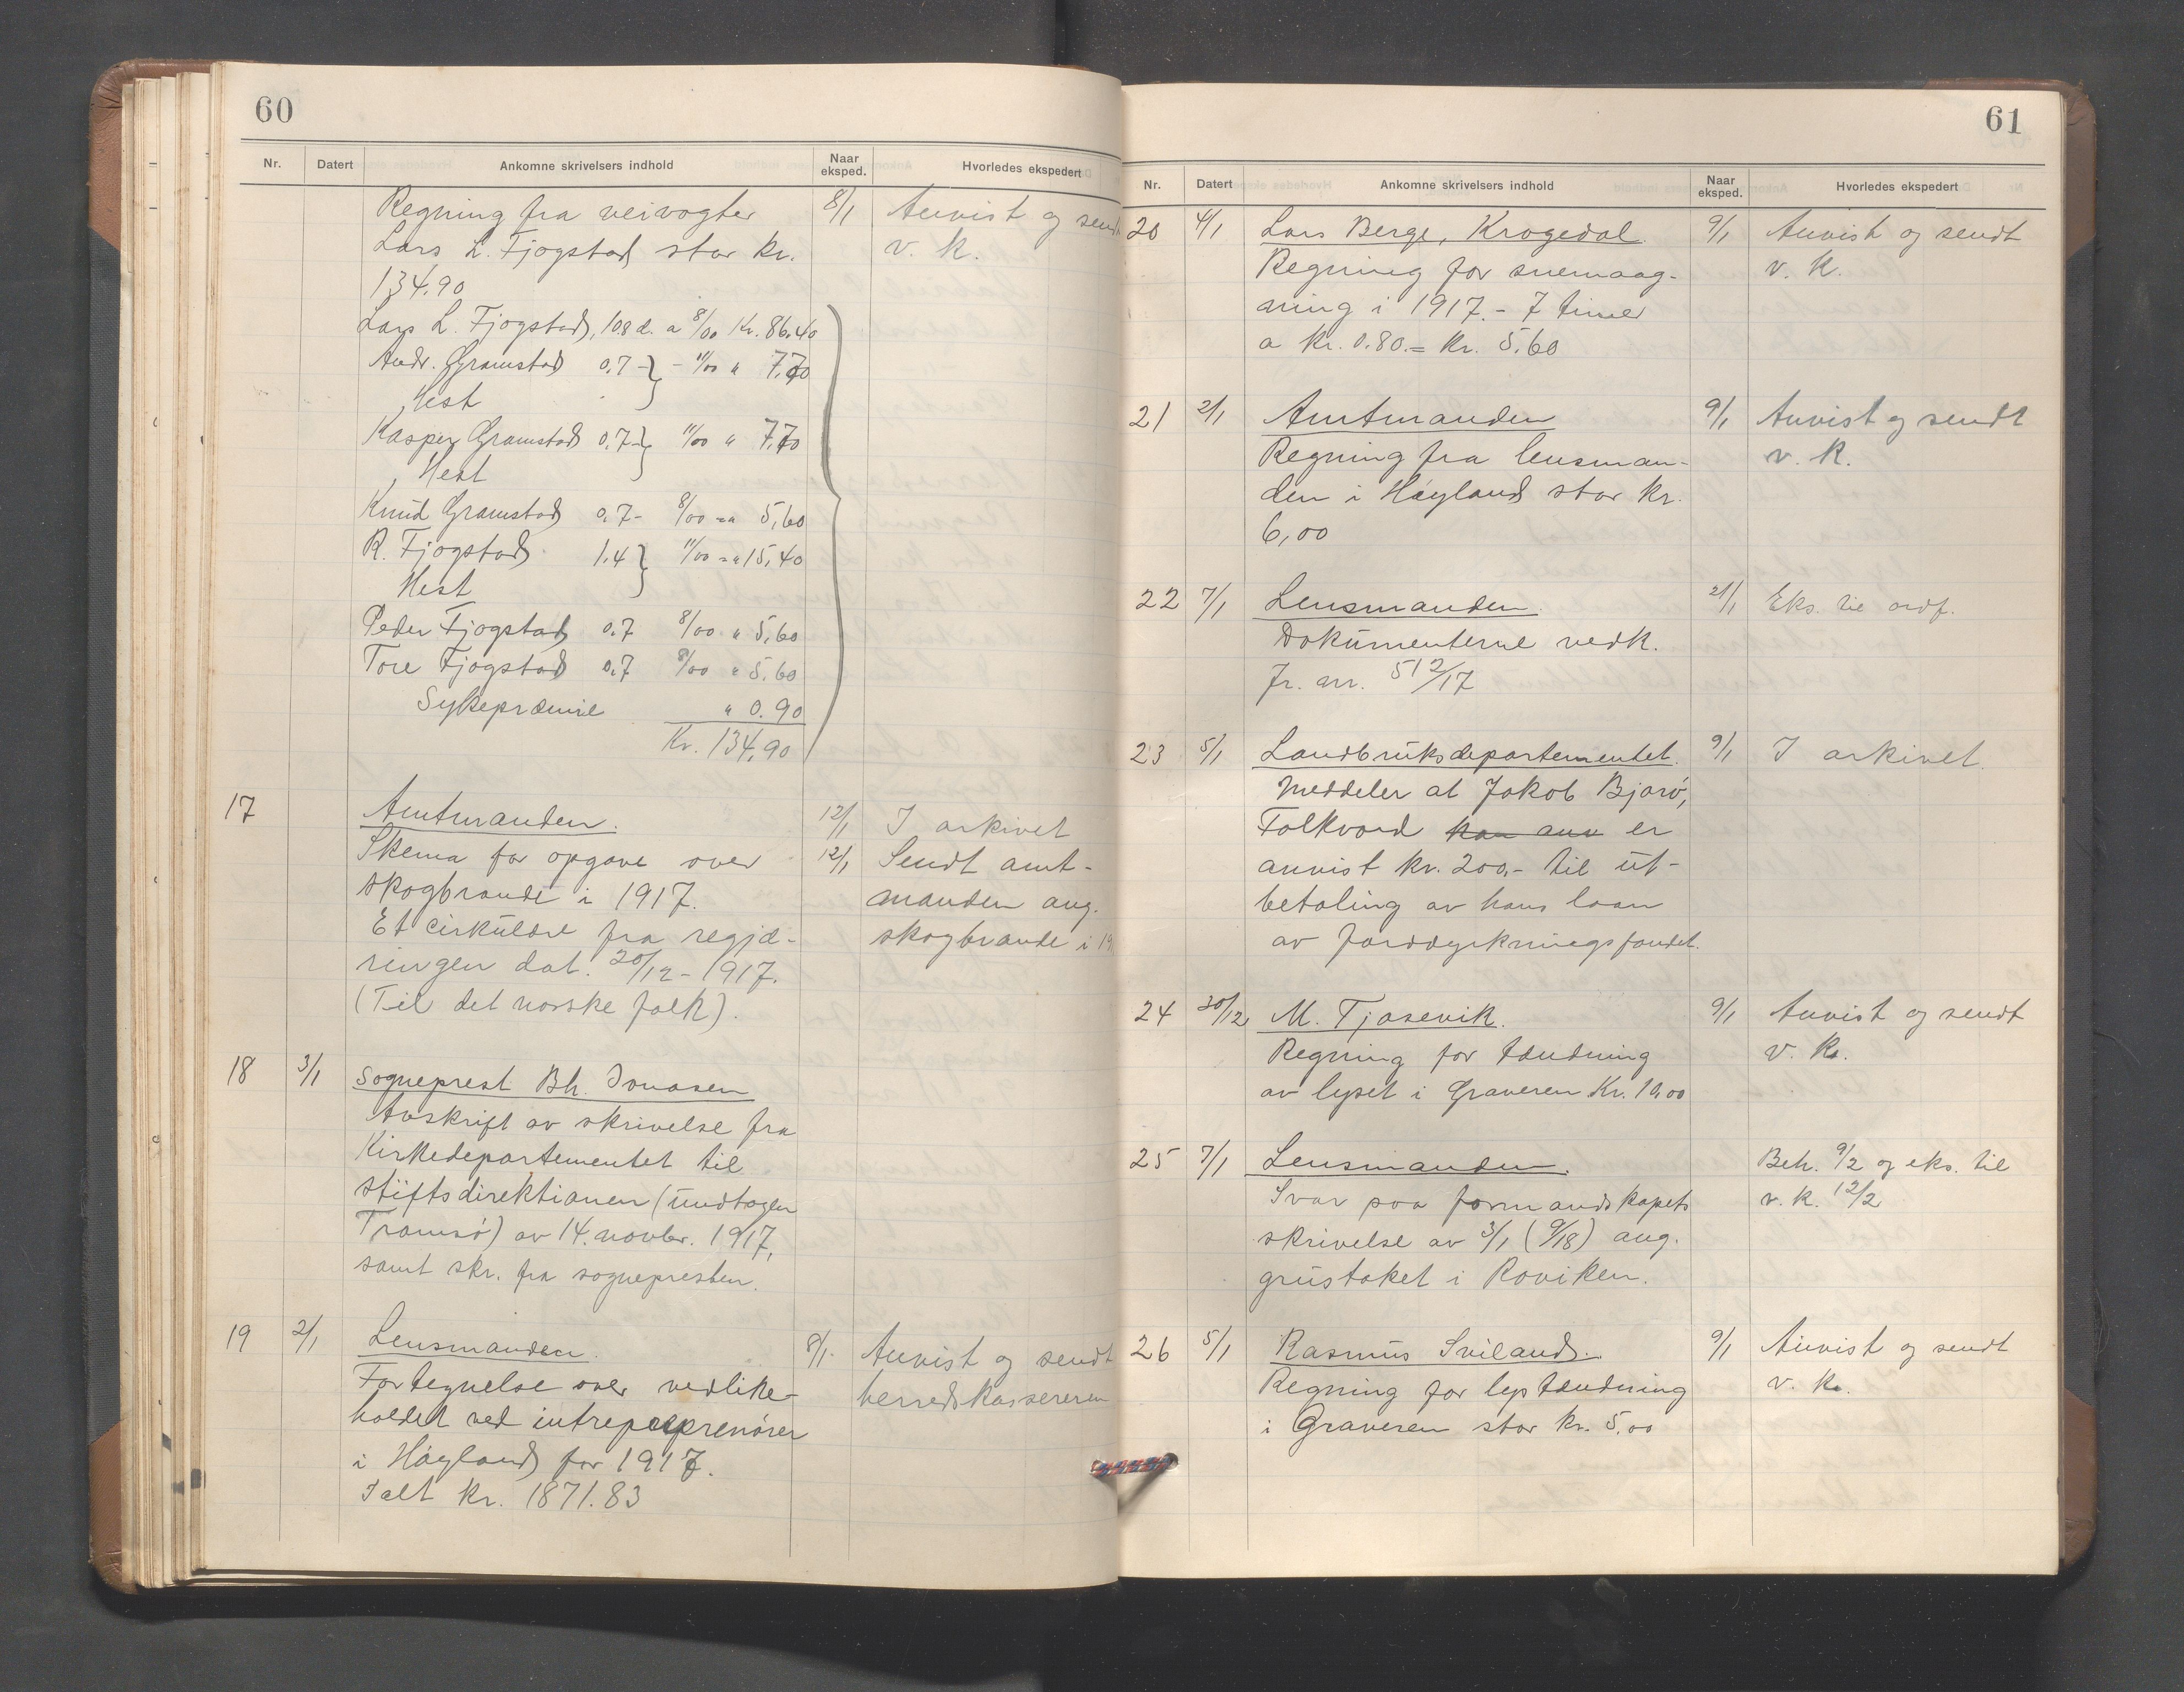 60
Nr. Datert Ankomne skrivelsers indhold Naar eksped. Hvorledes ekspedert
Regning fra veivogter 8/1 Anvist og sendt
Lars L. Fjogstad stor kr. v. k.
134.90
Lars L. Fjogstad, 108 d. a 8/00 Kr. 86.40
Andr. Gramstad 0.7 - } - 11/00 " 7.70
Hest
Kasper Gramstad 0.7 - } 11/00 " 7.70
Hest
Knud Gramstad 0.7 - 8/00 = " 5,60
R. Fjogstad 1.4 } 11/00 = " 15,40
Hest
Peder Fjogstad 0.7 8/00 " 5,60
Tore Fjogstad 0.7 8/00 " 5.60
Sykepræmie " 0.90
Kr. 134,90
17 Amtmanden. 12/1 I arkivet
Skema for opgave over 12/1 Sendt amt-
skogbrande i 1917. manden ang.
Et cirkulære fra regjæ- skogbrande i 19
ringen dat. 20/12 - 1917.
(Til det norske folk).
18 3/1 Sogneprest Bh. Jonasen
Avskrift av skrivelse fra
Kirkedepartementet til
stiftsdirektionen (undtagen
Tromsö) av 14. novbr. 1917,
samt skr. fra sognepresten.
19 2/1 Lensmanden. 8/1 Anvist og sendt
Fortegnelse over vedlike- herredskassereren
holdet ved intreprenörer
i Höyland for 1917.
Ialt kr. 1871.83
61
Nr. Datert Ankomne skrivelsers indhold Naar eksped. Hvorledes ekspedert
20 4/1 Lars Berge, Krogedal. 9/1 Anvist og sendt
Regning for snemaag- v. k.
ning i 1917. - 7 timer
a kr. 0.80. = kr. 5.60
21 2/1 Amtmanden 9/1 Anvist og sendt
Regning fra lensman- v. k.
den i Höyland stor kr.
6,00
22 7/1 Lensmanden. 21/1 Eks. til ordf.
Dokumenterne vedk.
Jr. nr. 512/17
23 5/1 Landbruksdepartementet. 9/1 I arkivet.
Meddeler at Jakob Bjorö,
Folkvord kan anv er
anvist kr. 200,- til ut-
betaling av hans laan
av Jorddyrkningsfondet.
24 30/12 M. Tjosevik. 9/1 Anvist og sendt
Regning for tændning v. k.
av lyset i Graveren Kr. 10,00
25 7/1 Lensmanden. Beh. 9/2 og eks. til
Svar paa formandskapets v. k. 12/2
skrivelse av 3/1 (9/18) ang.
grustaket i Roviken.
26 5/1 Rasmus Sviland. 9/1 Anvist og sendt
Regning for lystændning v. k.
i Graveren stor kr. 5.00